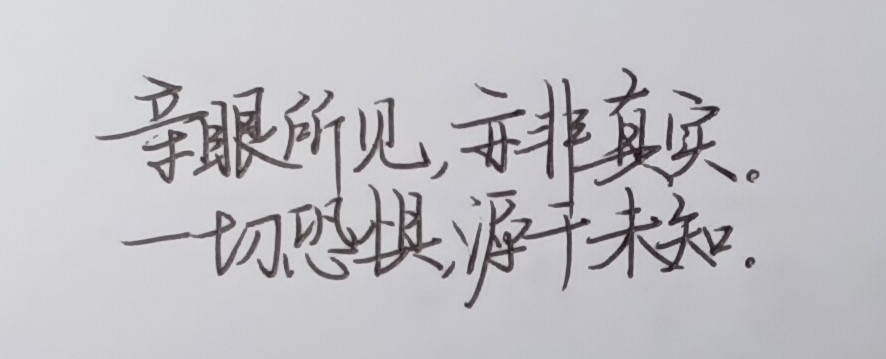 亲眼所见,亦非真实。
一切恐惧,源于未知.